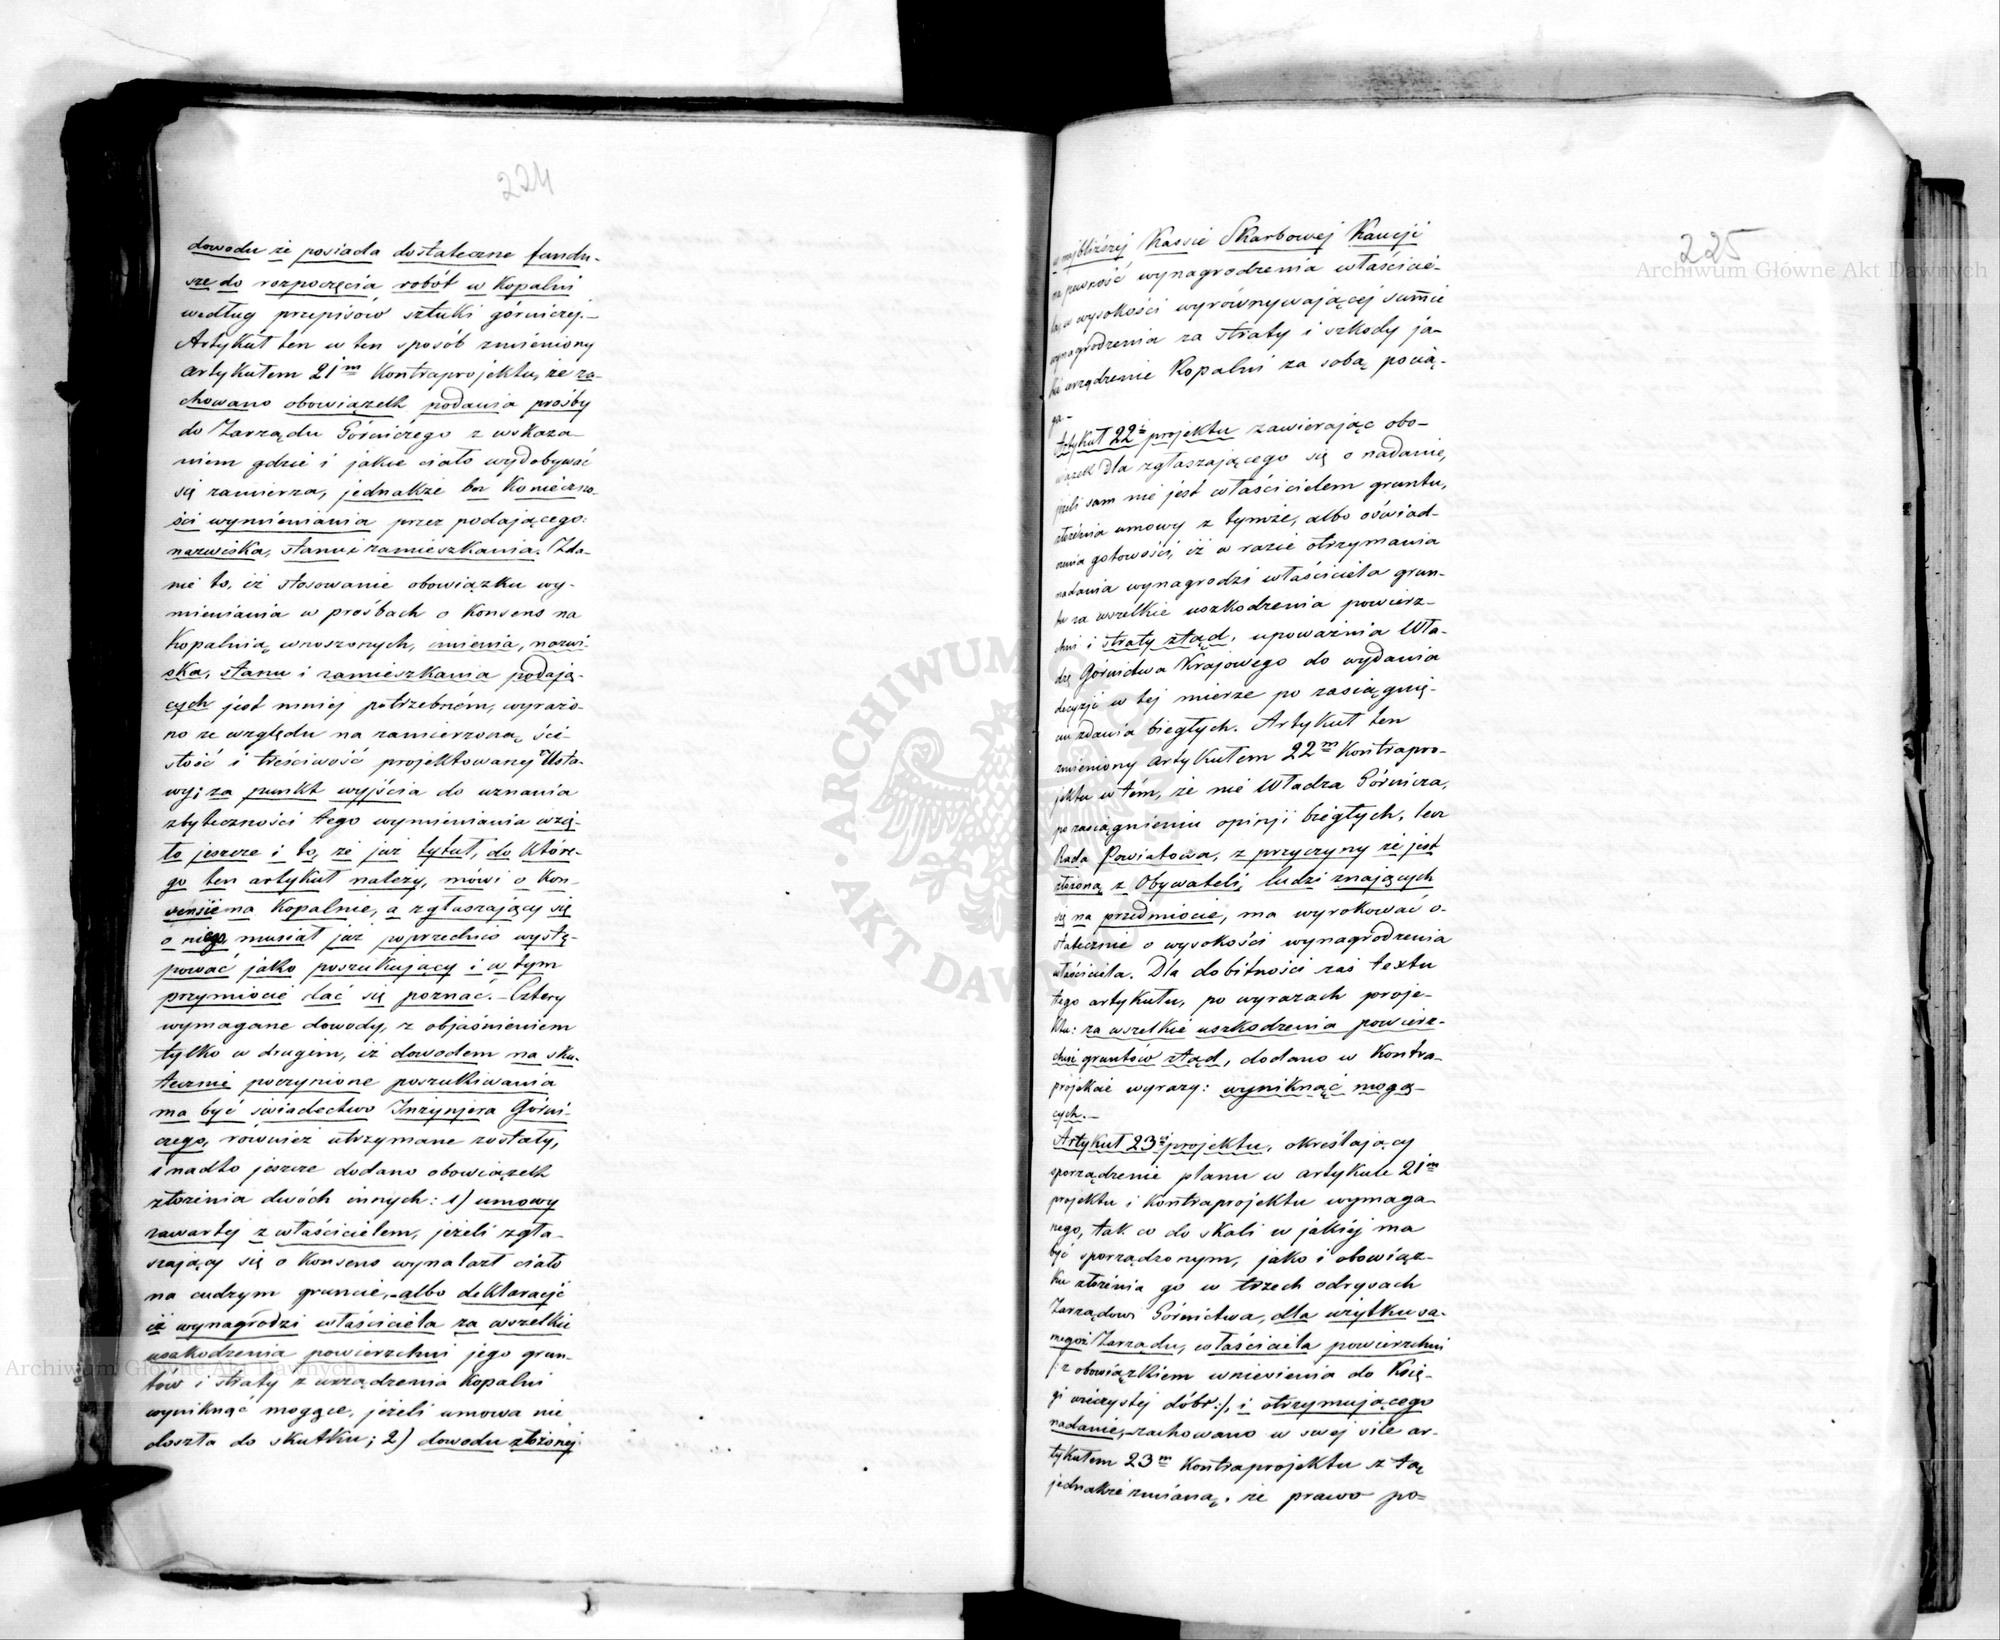 224
dowodu że posiada dostateczne fundu-
sze do rozpoczęcia robót w Kopalni
według przepisów sztuki górniczej.—
Artykuł ten w ten sposób zmieniony
artykułem 21m Kontraprojektu, że za-
chowano obowiązek podania prośby
do Zarządu Górniczego z wskaza-
niem gdzie i jakie ciało wydobywać
się zamierza, jednakże bez Konieczno-
ści wymieniania przez podającego:
nazwiska, stanu i zamieszkania. Zda-
nie to, iż stosowanie obowiązku wy-
mieniania w prośbach o Konsens na
Kopalnią wnoszonych, imienia, nazwi-
ska, stanu i zamieszkania podają-
cych jest mniej potrzebném, wyrażo-
no ze względu na zamierzoną ści-
słość i treściwość projektowanej Usta-
wy; za punkt wyjścia do uznania
zbyteczności tego wymieniania wzię-
to jeszcze i to, że już tytuł, do Które-
go ten artykuł należy, mówi o Kon-
sensie na Kopalnie, a zgłaszający się
o niego musiał już poprzednio wystę-
pować jako poszukujący i w tym
przymiocie dać się poznać.— Cztery
wymagane dowody, z objaśnieniem
tylko w drugim, iż dowodem na sku-
tecznie poczynione poszukiwania
ma być świadectwo Inżynjera Górni-
czego, również utrzymane zostały,
i nadto jeszcze dodano obowiązek
złożenia dwóch innych: 1) umowy
zawartej z właścicielem, jeżeli zgła-
szający się o Konsens wynalazł ciało
na cudzym gruncie,—albo deklaracji
iż wynagrodzi właściciela za wszelkie
uszkodzenia powierzchni jego grun-
tów i straty z urządzenia Kopalni
wyniknąć mogące, jeżeli umowa nie
doszła do skutku; 2) dowodu złożonej
225
w najbliższej Kassie Skarbowej Kaucji
na pewność wynagrodzenia właścicie-
la, w wysokości wyrównywającej summie
wynagrodzenia za straty i szkody ja-
kie urządzenie Kopalni za sobą pocią-
ga.—
Artykuł 22i projektu zawierając obo-
wiązek dla zgłaszającego się o nadanie,
jeżeli sam nie jest właścicielem gruntu,
złożenia umowy z tymże, albo oświad-
czenia gotowości, iż w razie otrzymania
nadania wynagrodzi właściciela grun-
tu za wszelkie uszkodzenia powierz-
chni i straty ztąd, upoważnia Wła-
dzę Górnictwa Krajowego do wydania
decyzji w tej mierze po zasiągnię-
ciu zdania biegłych. Artykuł ten
zmieniony artykułem 22m Kontrapro-
jektu w tém, że nie Władza Górnicza,
po zasiągnieniu opinji biegłych, lecz
Rada Powiatowa, z przyczyny że jest
złożoną z Obywateli, ludzi znających
się na przedmiocie, ma wyrokować o-
statecznie o wysokości wynagrodzenia
właściciela. Dla dobitności zaś textu
tego artykułu, po wyrazach proje-
ktu: za wszelkie uszkodzenia powierz-
chni gruntów ztąd, dodano w Kontra-
projekcie wyrazy: wyniknąć mogą-
cych.—
Artykuł 23i projektu, określający
sporządzenie planu w artykule 21m
projektu i Kontraprojektu wymaga-
nego, tak co do skali w jakiéj ma
być sporządzonym, jako i obowiąz-
ku złożenia go w trzech odrysach
Zarządowi Górnictwa, dla użytku sa-
megoż Zarządu, właściciela powierzchni
/:z obowiązkiem wniesienia do Księ-
gi wieczystej dóbr:/, i otrzymującego
nadanie,—zachowano w swej sile ar-
tykułem 23m Kontraprojektu z tą
jednakże zmianą, że prawo po=
Archiwum Główne Akt Dawnych
Archiwum Główne Akt Dawnych
ARCHIWUM GŁÓWNE AKT DAWNYCH